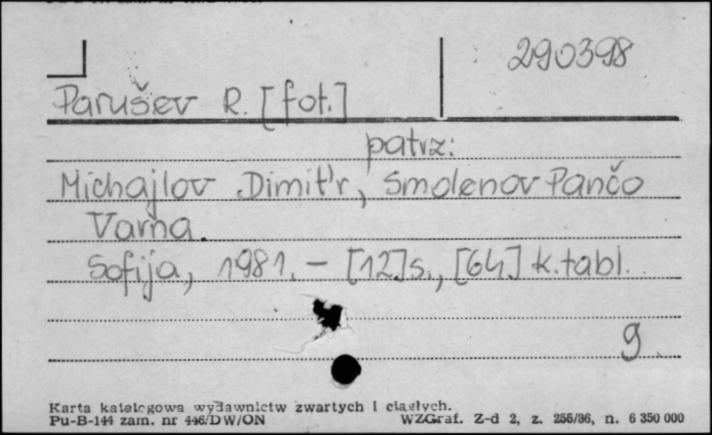 290398
Parušev R. [fot.]
patrz:
Michajlov Dimit'r, Smolenov Pančo
Varna.
Sofija, 1981. – [12]s., [64] k. tabl.
9
Karta katalogowa wydawnictw zwartych i ciągłych.
Pu-B-144 zam. nr 446/DW/ON WZGraf. Z-d 2, z. 256/86, n. 6 350 000